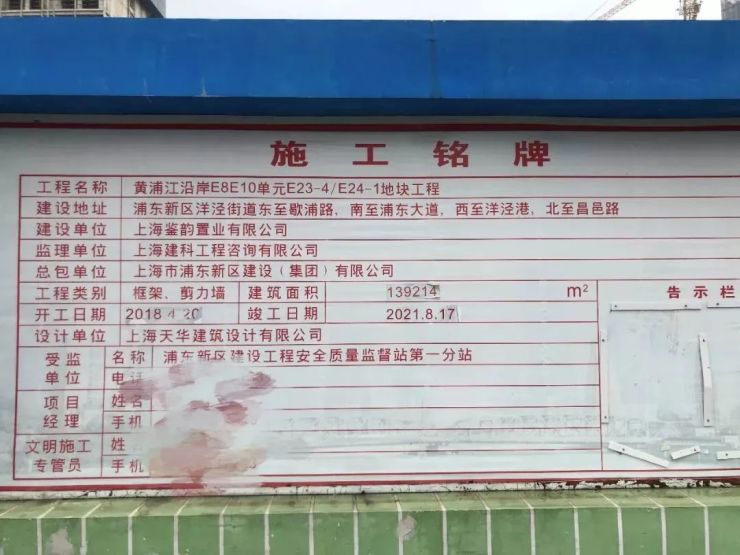 施工铭牌
工程名称 黄浦江沿岸E8E10单元E23-4/E24-1地块工程
建设地址 浦东新区洋泾街道东至歇浦路、南至浦东大道，西至洋泾港，北至昌邑路
建设单位 上海鉴韵置业有限公司
监理单位 上海建科工程咨询有限公司
总包单位 上海市浦东新区建设（集团）有限公司
工程类别 框架、剪力墙 建筑面积 139214 m² 告示栏
开工日期 2018.4.20 竣工日期 2021.8.17
设计单位 上海天华建筑设计有限公司
受监单位 名称 浦东新区建设工程安全质量监督站第一分站
电话
项目经理 姓名
手机
文明施工专管员 姓
手机